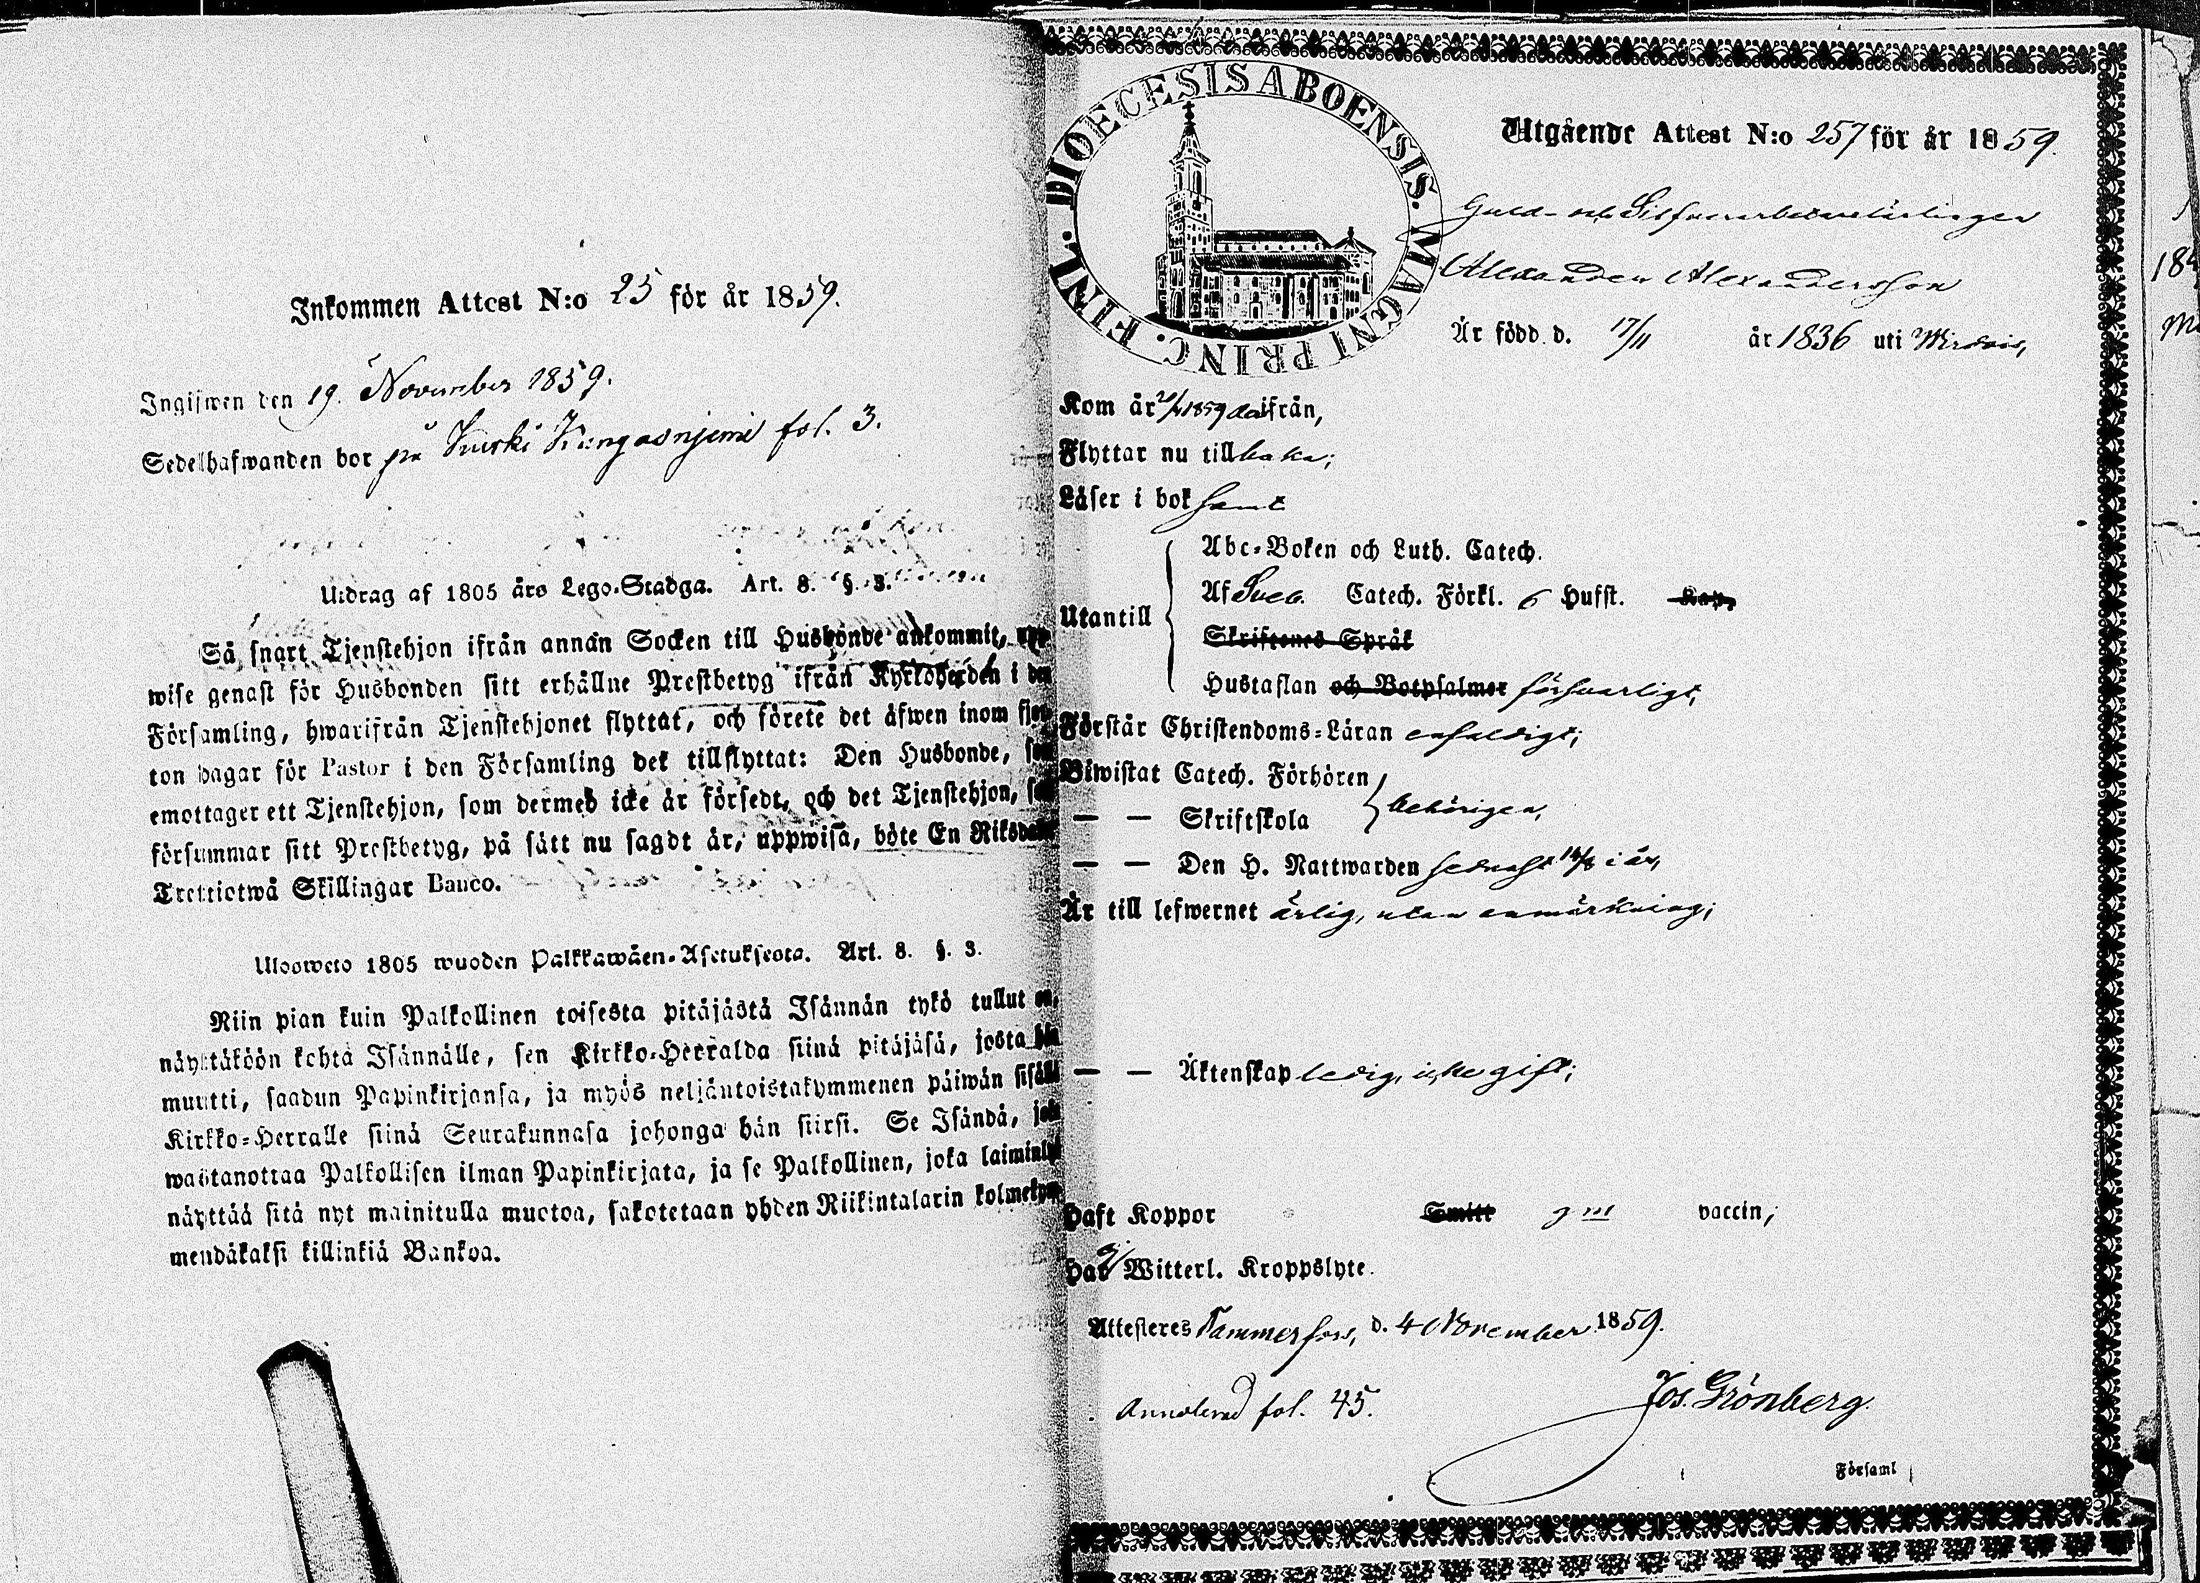 Inkommen Attest N:o 25 för år 1859.
Ingifwen den 19. November 1859.
Sedelhafwanden bor på Kurki Kangasnjemi fol. 3.
Utdrag af 1805 års Lego-Stadga. Art. 8. §. 3.
Så snart Tjenstehjon ifrån annan Socken till Husbonde ankommit,
wise genast för Husbonden sitt erhållne Prestbetyg ifrån Kyrkoherden i den
Församling, hwarifrån Tjenstehjonet flyttat, och förete det äfwen inom fjor-
ton dagar för Pastor i den Församling det tillflyttat: Den Husbonde, som
emottager ett Tjenstehjon, som dermed icke är försedt, och det Tjenstehjon, som
försummar sitt Prestbetyg, på sätt nu sagdt är, uppwisa, böte En Riksdaler
Trettiotwå Skillingar Banco.
Ulosweto 1805 wuoden Palkkawäen-Asetuksesta. Art. 8. §. 3.
Niin pian kuin Palkollinen toisesta pitäjästä Isännän tykö tullut on,
näyttäköön kohta Isännälle, sen Kirkko-Herralda siinä pitäjäsä, josta hän
muutti, saadun Papinkirjansa, ja myös neljäntoistakymmenen päiwän sisällä
Kirkko-Herralle siinä Seurakunnasa johonga hän siirsi. Se Isändä, joka
wastanottaa Palkollisen ilman Papinkirjata, ja se Palkollinen, joka laiminlyö
näyttää sitä nyt mainitulla muotoa, sakotetaan yhden Riikintalarin kolmekym-
mendäkaksi killinkiä Bankoa.
DIOECESIS ABOENSIS. MAGNI PRINC. FINL.
Utgående Attest N:o 257 för år 1859.
Guld- och Silfverarbetarelärlingen
Alexander Alexandersson
Är född d. 17/11 år 1836 uti Wirdois,
Kom år 1859 därifrån,
Flyttar nu tillbaka;
Läser i bok samt
Utantill
Abc-Boken och Luth. Catech.
Af Sveb. Catech. Förkl. 6 Hufst. Kap.
Skriftenes Språk
Hustaflan och Botpsalmer försvarligt,
Förstår Christendoms-Läran enfaldigt;
Biwistat Catech. Förhören
— — Skriftskola behörigen,
— — Den H. Nattwarden sednast i år,
Är till lefwernet ärlig, utan anmärkning;
— — Äktenskap ledig, icke gift;
Haft Koppor Smitt gm vaccin,
Har ej Witterl. Kroppslyte.
Attesteres Tammerfors, d. 4 November 1859.
Annoterad fol. 45.
Jos. Grönberg.
Församl